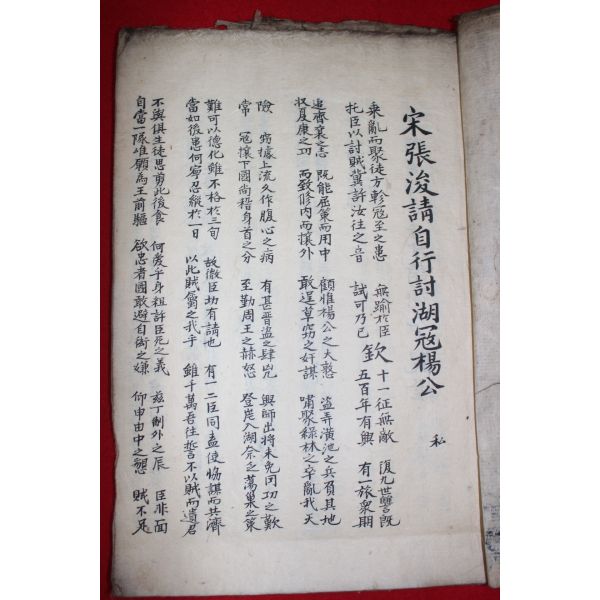 宋張浚請自行討湖冦楊公
私
乘亂而聚徒方軫冦至之患 無踰於臣 十一征無敵 復九世讐旣
托臣以討賊冀許汝往之音 試可乃已 欽 五百年有興 有一旅衆期
追齊襄之志 旣能屈策而用中 顧惟楊公之大憝 盜弄潢池之兵負其地
收夏康之功 而致修内而攘外 敢逞草竊之奸謀 嘯聚綠林之卒亂我天
險 竊據上流久作腹心之病 有甚晋盜之肆兇 興師出將未免罔功之歎
常 冦攘下國尚稽身首之分 至勤周王之赫怒 登岸入湖奈乏蕩巢之策
難可以德化雖不格於三旬 故微臣有請也 有一二臣同盍使恊謀而共濟
當如後患何寧忍縱於一日 以此賊屬之我乎 雖千萬吾往誓不以賊而遺君
不與俱生徒思剪此後食 何愛乎身粗許臣死之義 玆丁制外之辰 臣非面
自當一隊願為王前驅 欲忠者國敢避自衒之嫌 仰申由中之懇 賊不足